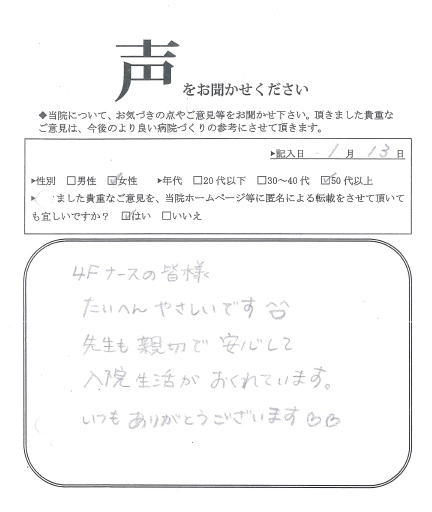 声をお聞かせください
◆当院について、お気づきの点やご意見等をお聞かせ下さい。頂きました貴重な
ご意見は、今後のより良い病院づくりの参考にさせて頂きます。
▶記入日 1 月 13 日
▶性別 □男性 ☑女性 ▶年代 □20代以下 □30〜40代 ☑50代以上
▶ました貴重なご意見を、当院ホームページ等に匿名による転載をさせて頂いて
も宜しいですか? ☑はい □いいえ
4Fナースの皆様
たいへんやさしいです^^
先生も親切で安心して
入院生活がおくれています。
いつもありがとうございます